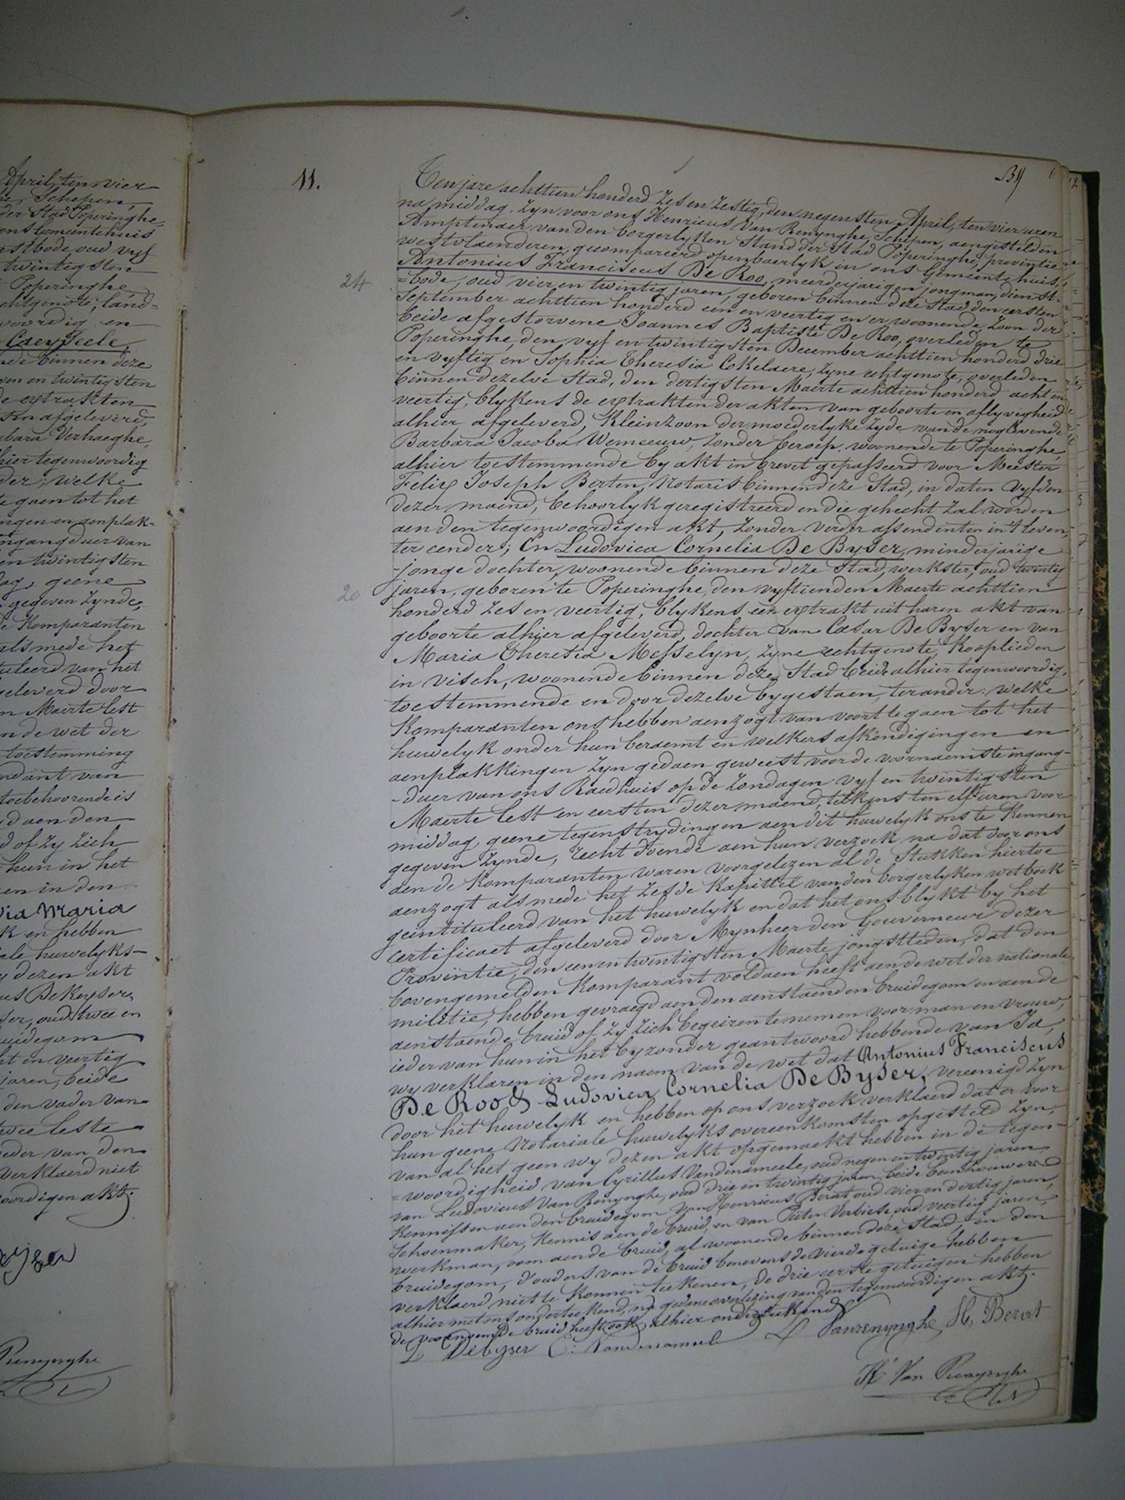 April, ten vier
Schepen,
der Stad Poperinghe,
ons Gemeentehuis
postbode, oud vyf
twintigsten
Poperinghe
echtgenote, land-
voordig en
Caeyseele,
binnen deze
en twintigsten
de extrakten
afgeleverd,
bara Verhaeghe,
hier tegenwoordig
der, welke
te gaen tot het
ingen en aenplak-
ingangduer van
en twintigsten
dag, geene
gegeven zynde,
Komparanten
alsmede het
tuleerd van het
geleverd door
n Maerte lest
nde wet der
toestemming
ndant van
toebehoorende is
d aen den
d of zy zich
hun in het
en in den
via Maria
k en hebben
ale huwelyks-
y dezen akt
us DeKeyser,
ser, oud twee en
bruidegom
t en veertig
jaren, beide
den vader van
twee leste
eder van den
verklaerd niet
oordigen akt.
Renynghe
11.
B9
24
20
Ten jare achttien honderd zes en zestig, den negensten April, ten vier uren
na middag. Zyn voor ons Henricus Van Renynghe, Schepen, aengestelden
Amptenaer van den borgerlyken Stand der Stad Poperinghe, provintie
westvlaenderen, gecompareerd openbaerlyk in ons Gemeente huis,
Antonius Franciscus De Roo, meerderjarigen jongman, dienst-
bode, oud vier en twintig jaren, geboren binnen deze Stad den eersten
September achttien honderd een en veertig en er woonende, zoon der
beide afgestorvene Joannes Baptiste De Roo, overleden te
Poperinghe, den vyf en twintigsten December achttien honderd drie
en vyftig en Sophia Theresia Cokelaere, zyne echtgenote, overleden
binnen dezelve Stad, den dertigsten Maerte achttien honderd acht en
veertig, blykens de extrakten der akten van geboorte en aflyvigheid
alhier afgeleverd, Kleinzoon der moederlyke zyde van de nog levende
Barbara Jacoba Wemeeuw, zonder beroep, woonende te Poperinghe
alhier toestemmende by akt in brevet gepasseerd voor Meester
Felix Joseph Berten, Notaris binnen deze Stad, in daten vyfden
dezer maend, behoorlyk geregistreerd en die gehecht zal worden
aen den tegenwoordigen akt, zonder verdre assendenten in 't leven,
ter eender; En Ludovica Cornelia De Byser, minderjarige
jonge dochter, woonende binnen deze Stad, werkster, oud twintig
jaren, geboren te Poperinghe, den vyftienden Maerte achttien
honderd zes en veertig, blykens een extrakt uit haren akt van
geboorte alhier afgeleverd, dochter van Cesar De Byser en van
Maria Theresia Messelyn, zyne echtgenote, Kooplieden
in visch, woonende binnen deze Stad beide alhier tegenwoordig,
toestemmende en door dezelve bygestaen, ter ander. welke
Komparanten ons hebben aenzogt van voort te gaen tot het
huwelyk onder hun beraemt en welkers afkondigingen en
aenplakkingen zyn gedaen geweest voor de voornaemste ingang-
duer van ons Raedhuis op de zondagen vyf en twintigsten
Maerte lest en eersten dezer maend, telkens ten elf uren voor
middag, geene tegenstrydingen aen dit huwelyk ons te Kennen
gegeven zynde, recht doende aen hun verzoek na dat door ons
aen de Komparanten waren voorgelezen al de Stukken hiertoe
aenzogt alsmede het zesde Kapittel van den borgerlyken wetboek
geintituleerd van het huwelyk en dat het ons blykt by het
certificaet afgeleverd door Mynheer den Gouverneur dezer
Provintie, den een en twintigsten Maerte jongstleden, dat den
bovengemelden Komparant voldaen heeft aen de wet der nationale
militie, hebben gevraegd aen den aenstaenden bruidegom en aen de
aenstaende bruid of zy zich begeiren te nemen voor man en vrouw,
ieder van hun in het byzonder geantwoord hebbende van Ja,
wy verklaren in den naem van de wet dat Antonius Franciscus
De Roo & Ludovica Cornelia De Byser, vereenigd zyn
door het huwelyk en hebben op ons verzoek verklaerd dat er voor
hun geene Notariale huwelyks overeenkomsten opgesteld zyn,
van al het geen wy dezen akt opgemaekt hebben in de tegen-
woordigheid van Cyrillus Vandenameele, oud negen en twintig jaren
van Ludovicus Van Renynghe, oud drie en twintig jaren, beide
Kennissen aen den bruidegom van Henricus Berat oud vier en dertig jaren,
Schoenmaker, Kennis aen de bruid en van Pieter oud veertig jaren,
werkman, oom aen de bruid, al woonende binnen deze Stad, en den
bruidegom, d'ouders van de bruid benevens de vierde getuige hebben
verklaerd niet te konnen teekenen, de drie eerste getuigen hebben
alhier met ons onderteekend, na gedane voorlezing van den tegenwoordigen akt.
de voornoemde bruid heeft ook alhier onderteekend
L Debyser C. Vandenameel L Vanrenynghe H. Berat
H. Van Renynghe